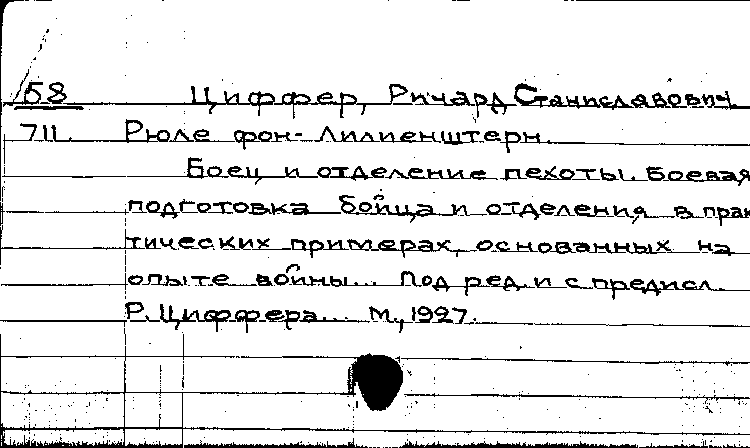 58 Циффер, Ричард Станиславович
711. Рюле фон-Лилиенштерн.
Боец и отделение пехоты. Боевая
подготовка бойца и отделения в прак
тических примерах, основанных на
опыте войны... Под ред. и с предисл.
Р. Циффера... М., 1927.